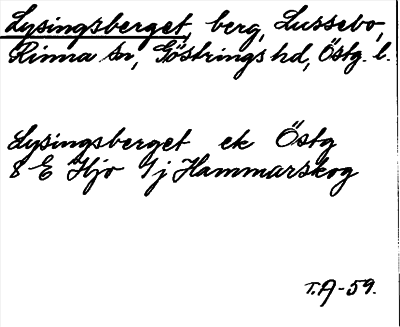 Lysingsberget, berg, Lussebo,
Rinna sn, Göstrings hd, Östg. l.
Lysingsberget ek Östg
8 E Hjo 1 j Hammarskog
T.A-59.